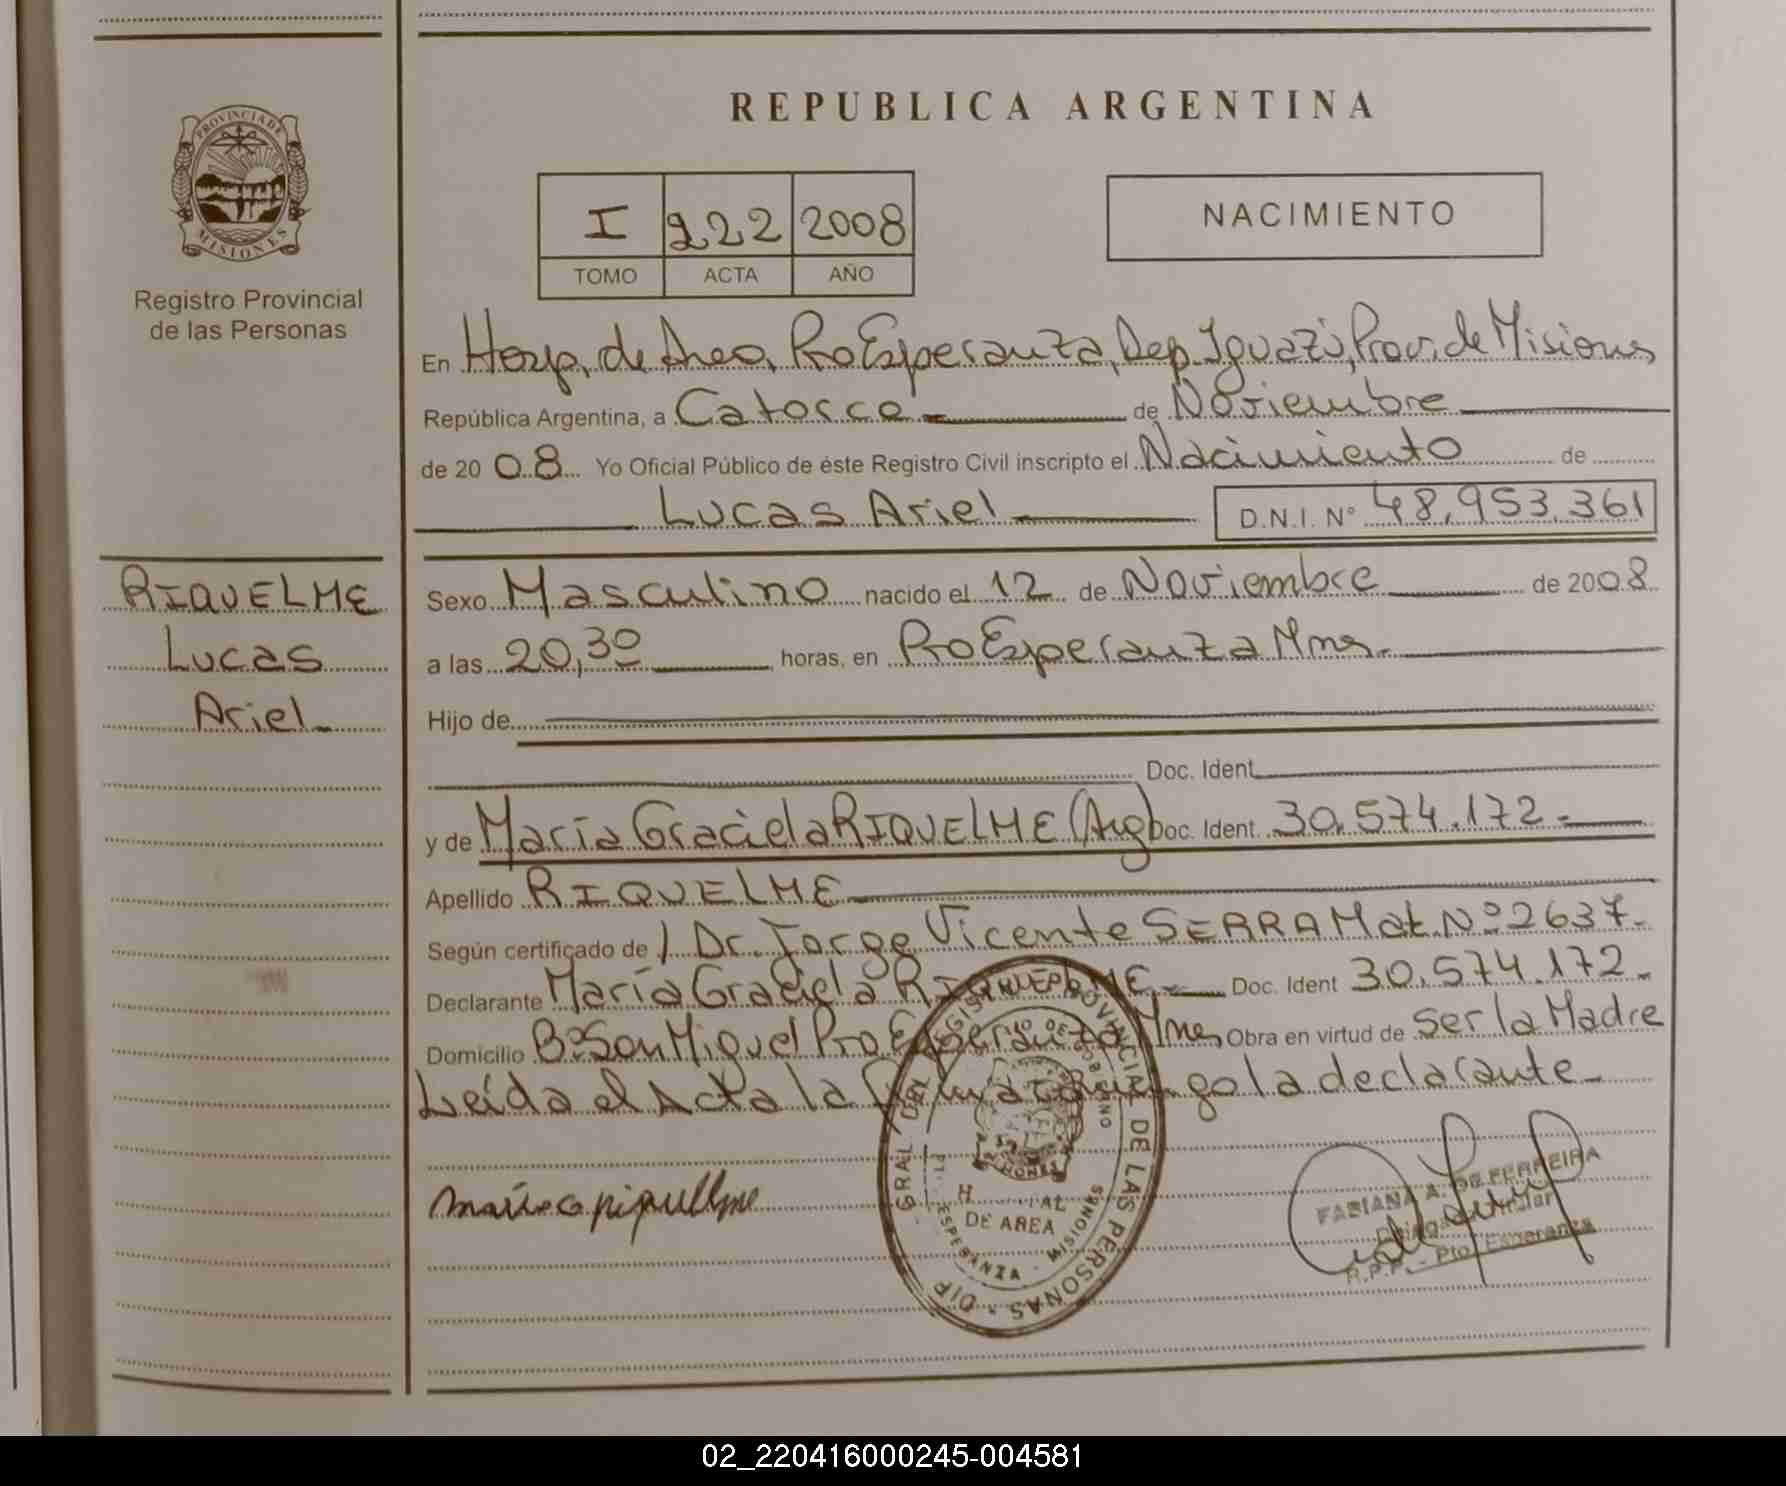 REPUBLICA ARGENTINA
PROVINCIA DE
MISIONES
Registro Provincial
de las Personas
I 222 2008
TOMO ACTA AÑO
NACIMIENTO
En Hosp. de Area, Pto Esperanza, Dep. Iguazú, Prov. de Misiones
República Argentina, a Catorce de Noviembre
de 2008 Yo Oficial Público de éste Registro Civil inscripto el Nacimiento de
Lucas Ariel D.N.I. N° 48.953.361
RIQUELME
Lucas
Ariel
Sexo Masculino nacido el 12 de Noviembre de 2008
a las 20,30 horas, en Pto Esperanza Mnes.
Hijo de
Doc. Ident
y de María Graciela RIQUELME (Arg) Doc. Ident 30.574.172
Apellido RIQUELME
Según certificado de / Dr. Jorge Vicente SERRA Mat. Nº 2637
Declarante María Graciela RIQUELME Doc. Ident 30.574.172
Domicilio Bº San Miguel Pto Esperanza Mnes Obra en virtud de ser la Madre
Leída el Acta la firma conmigo la declarante
GRAL DEL REGISTRO PROVINCIAL DE LAS PERSONAS
DE AREA
ESPERANZA - MISIONES
FABIANA A. DE FERREIRA
R.P.P. - Pto. Esperanza
02_220416000245-004581